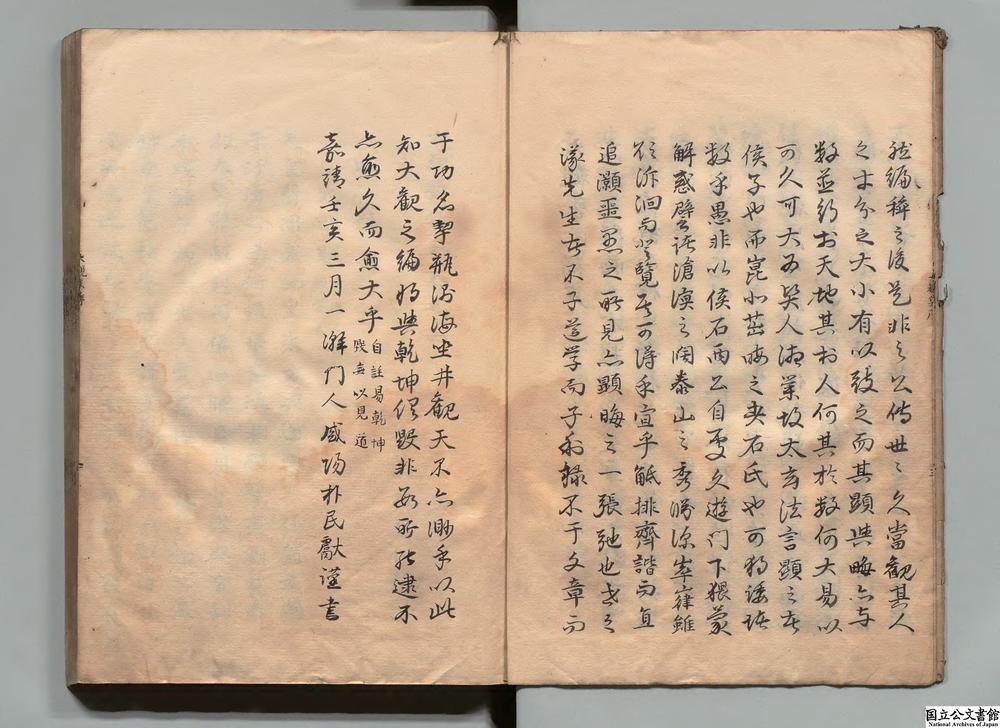 然編稱之後是非之公傳世之久當觀其人
之士分之大小有以致之而其顯與晦亦与
数並行於天地其於人何其於数何大易以
可久可大為賢人德業故太玄法言顯之者
侯子也而崑小茁晦之夫石氏也可獨諉諸
数乎愚非以侯石兩公自處久遊門下猥蒙
解惑譬諸滄溟之闊泰山之秀湧深崒嵂雖
欲泝洄而登覽焉可得乎宜乎觝排齊諧而直
追灝噩愚之所見亦顯晦之一張弛也者之
濂先生者不子道学而子不于文章而
于功名挈瓶測海坐井觀天不亦渺乎以此
知大觀之編將與乾坤俱毀非数所能逮不
亦愈久而愈大乎
自註易乾坤
毀無以見道
嘉靖壬亥三月一澥門人盛場朴民獻謹書
国立公文書館
National Archives of Japan